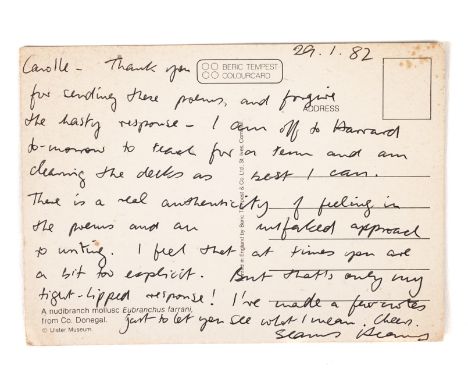 29.1.82
Carolle - Thank you
BERIC TEMPEST
COLOURCARD
for sending these poems, and forgive
ADDRESS
the hasty response - I am off to Harvard
to-morrow to teach for a term and am
clearing the decks as best I can.
There is a real authenticity of feeling in
the poems and an unfaked approach
to writing. I feel that at times you are
a bit too explicit. But that's only my
tight-lipped response! I've made a few notes
just to let you see what I mean. Cheers.
Seamus Heaney
A nudibranch mollusc Eubranchus farrani,
from Co. Donegal.
© Ulster Museum.
Made in England by Beric Tempest & Co. Ltd. St. Ives, Cornwall